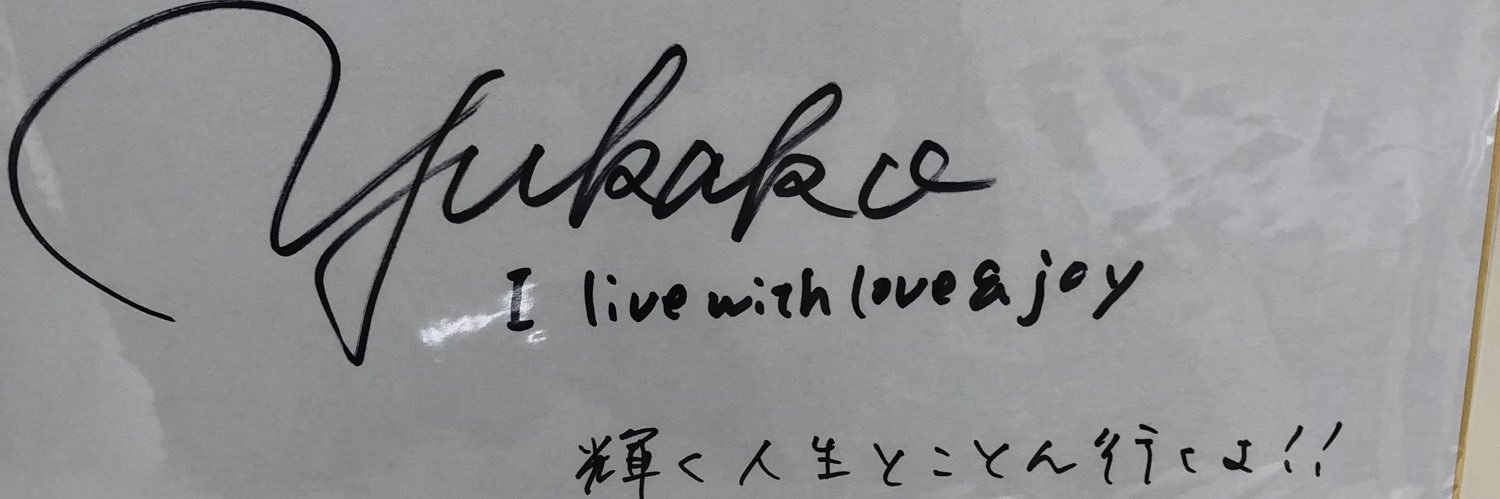 Yukako
I live with love & joy
輝く人生とことん行くよ!!